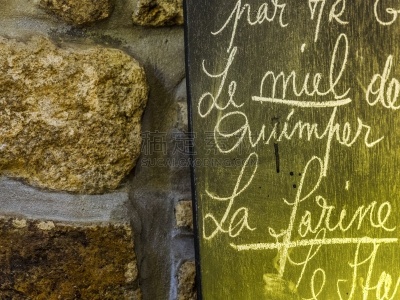 par Mr G
Le miel de
Quimper
La farine
Le